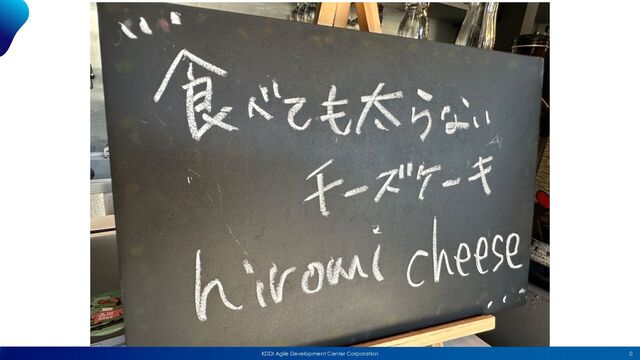 食べても太らない
チーズケーキ
hiromi cheese
KDDI Agile Development Center Corporation